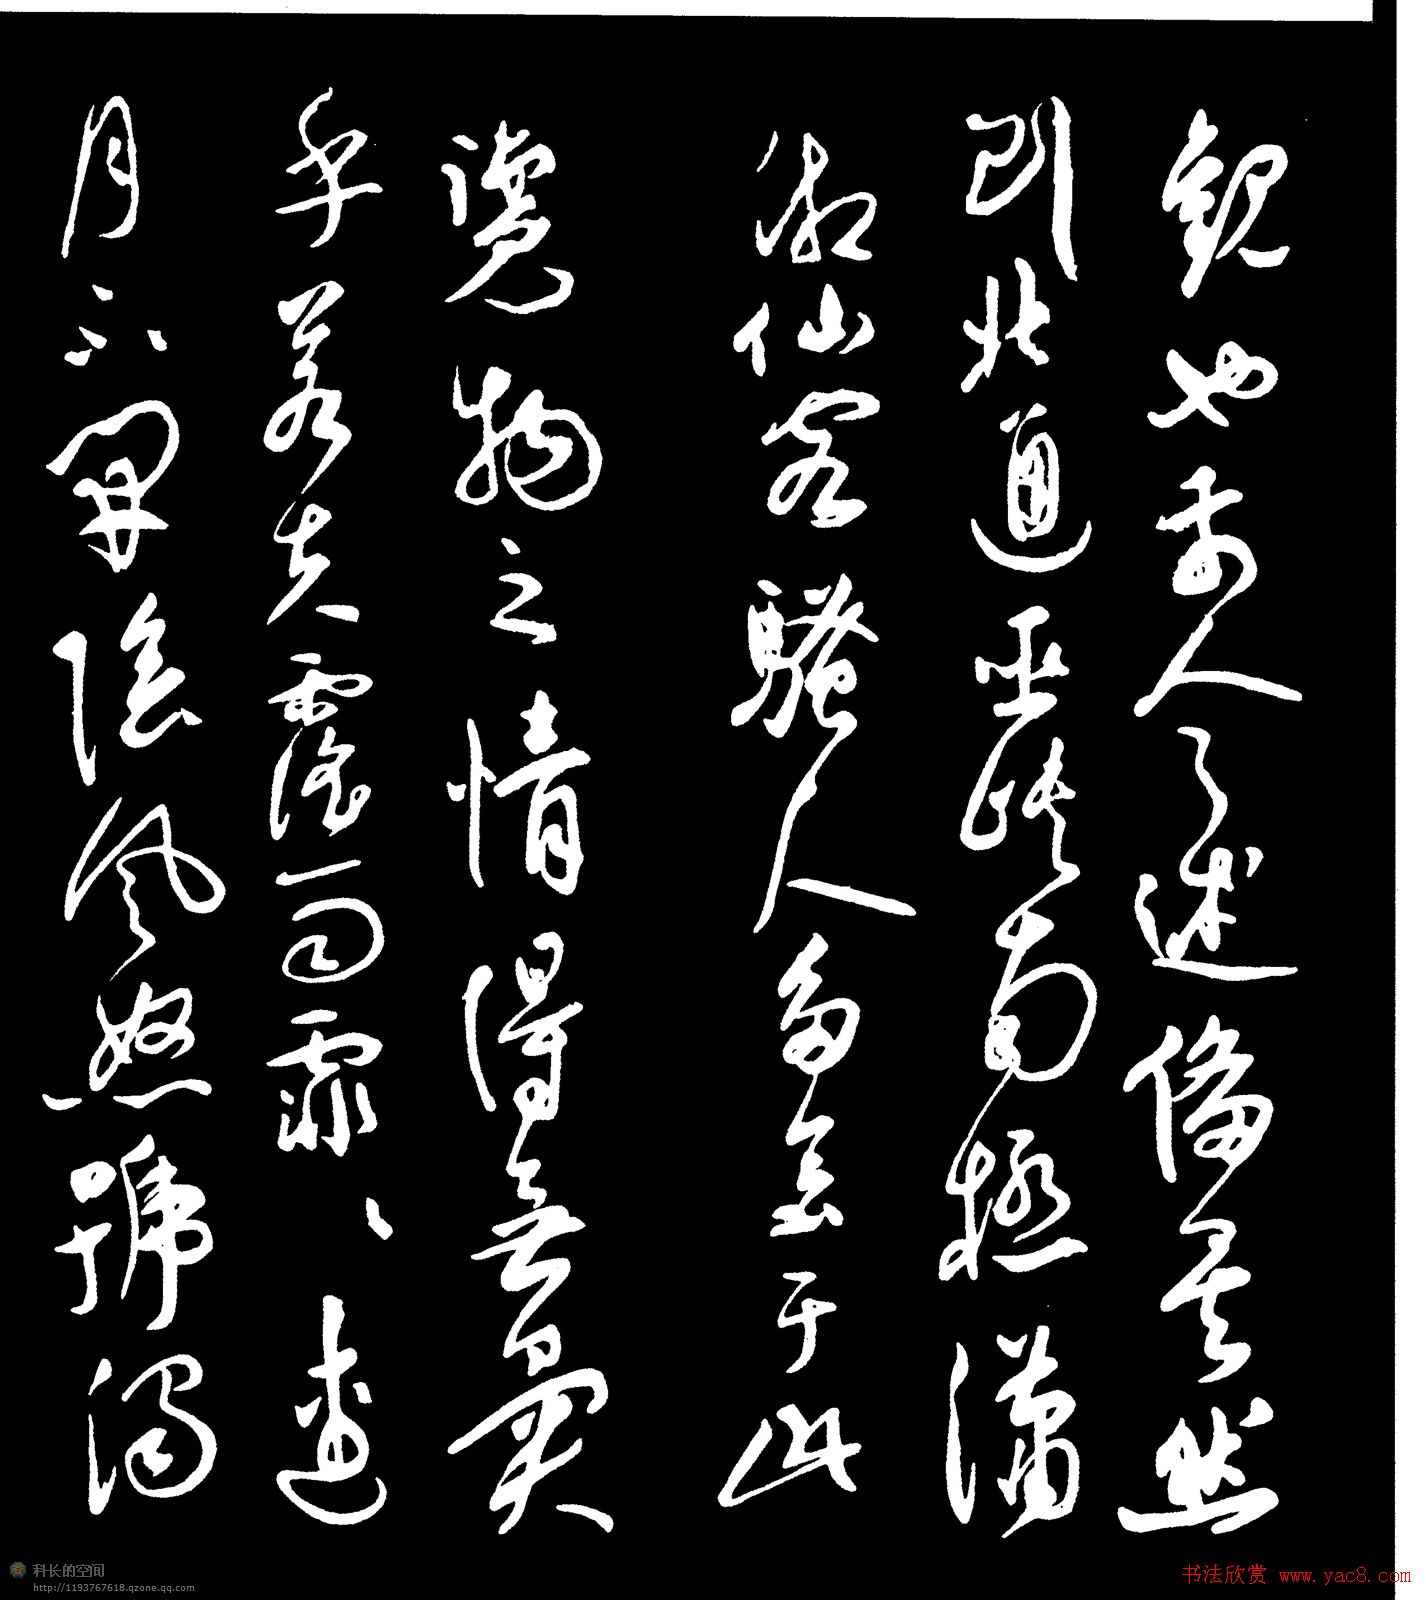 觀也前人之述備矣然
則北通巫峽南極瀟
湘仙客騷人多會于此
覽物之情得無異
乎若夫霪雨霏霏連
月不開陰風怒號濁
科长的空间
http://1193767618.qzone.qq.com
书法欣赏 www.yac8.com